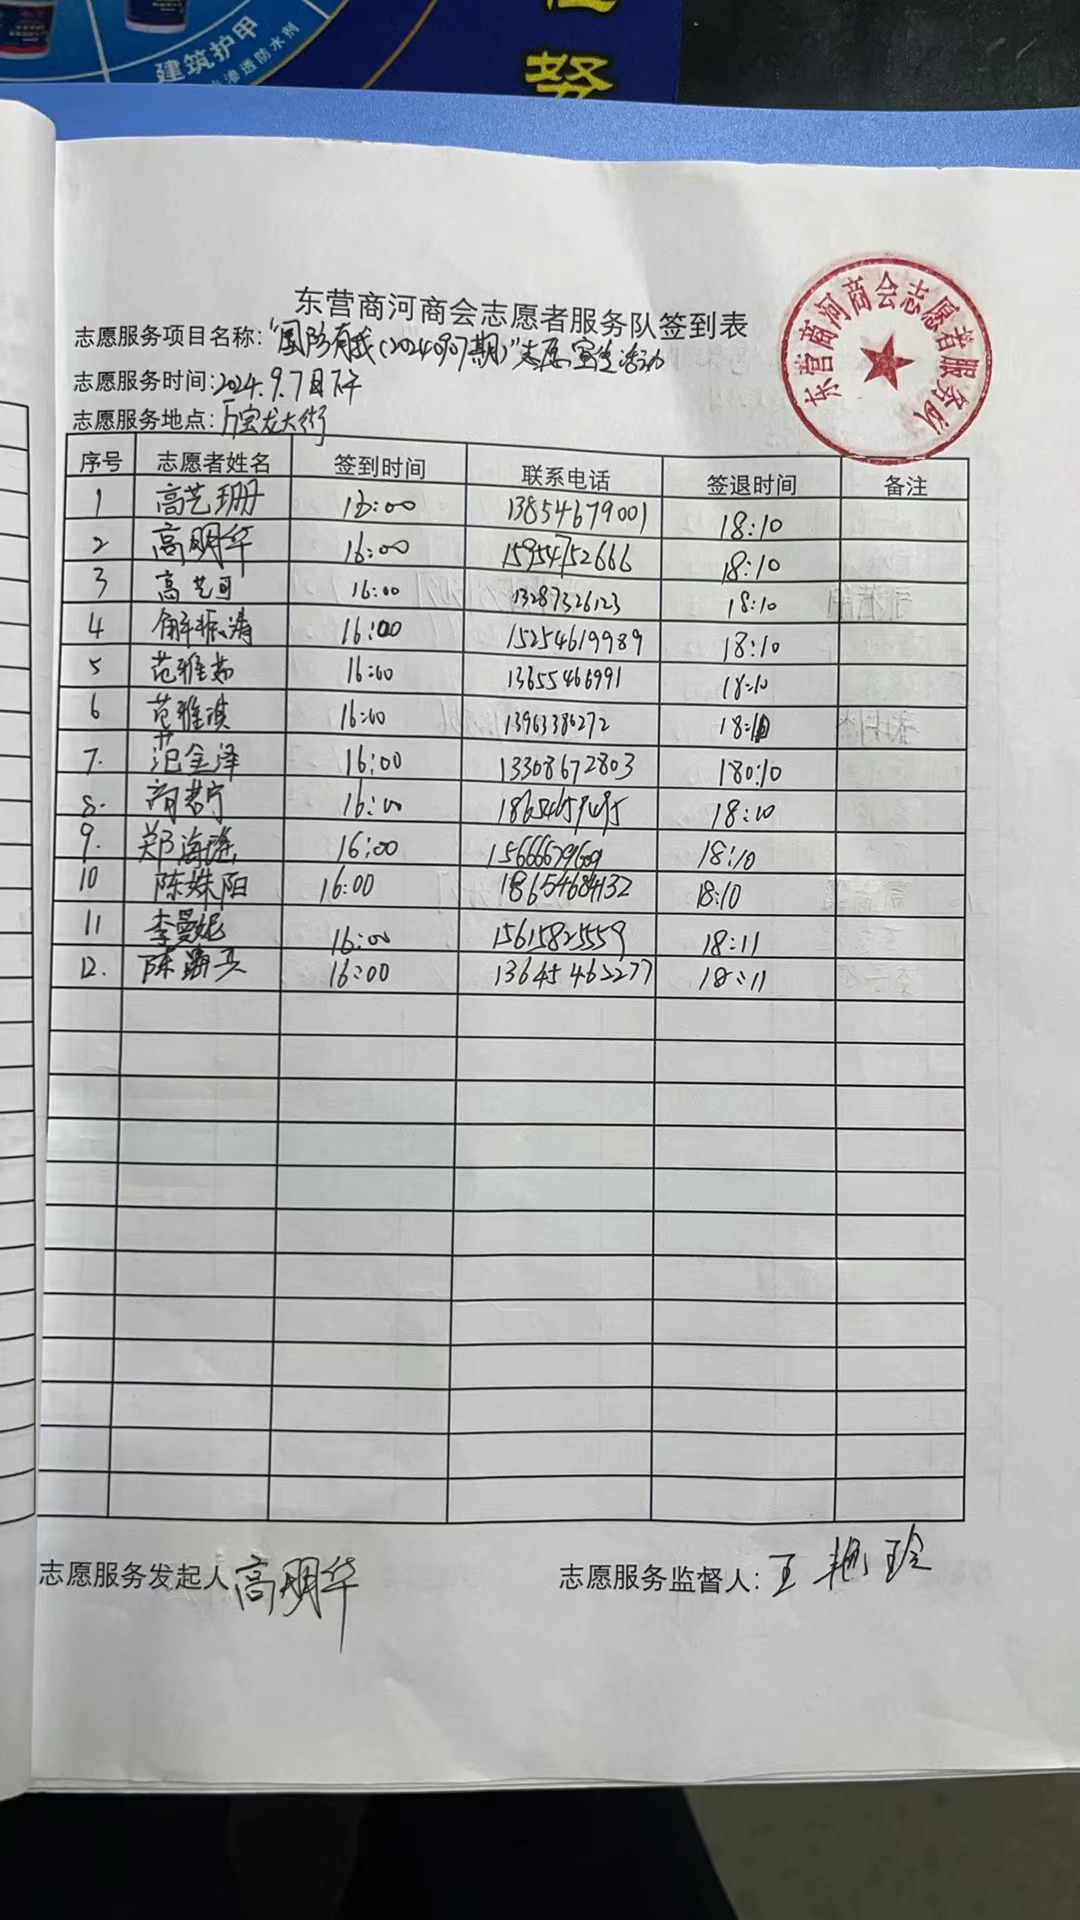 建筑护甲
渗透防水剂
东营商河商会志愿者服务队签到表
东营商河商会志愿者服务队
志愿服务项目名称:"国防有我(20240907期)"志愿宣传活动
志愿服务时间:2024.9.7日下午
志愿服务地点:万宝龙大街
序号 志愿者姓名 签到时间 联系电话 签退时间 备注
1 高艺珊 16:00 13854679001 18:10
2 高明华 16:00 15954752666 18:10
3 高艺可 16:00 13287326123 18:10
4 解振涛 16:00 15254619989 18:10
5 范雅茹 16:00 13655466991 18:10
6 范雅淇 16:00 13963386272 18:10
7. 范金泽 16:00 13308672803 180:10
8. 16:00 18:10
9. 郑海瑶 16:00 18:10
10 陈姝阳 16:00 18654684132 18:10
11 李曼妮 16:00 15615825559 18:11
12. 16:00 13645462277 18:11
志愿服务发起人 高明华
志愿服务监督人: 王艳玲